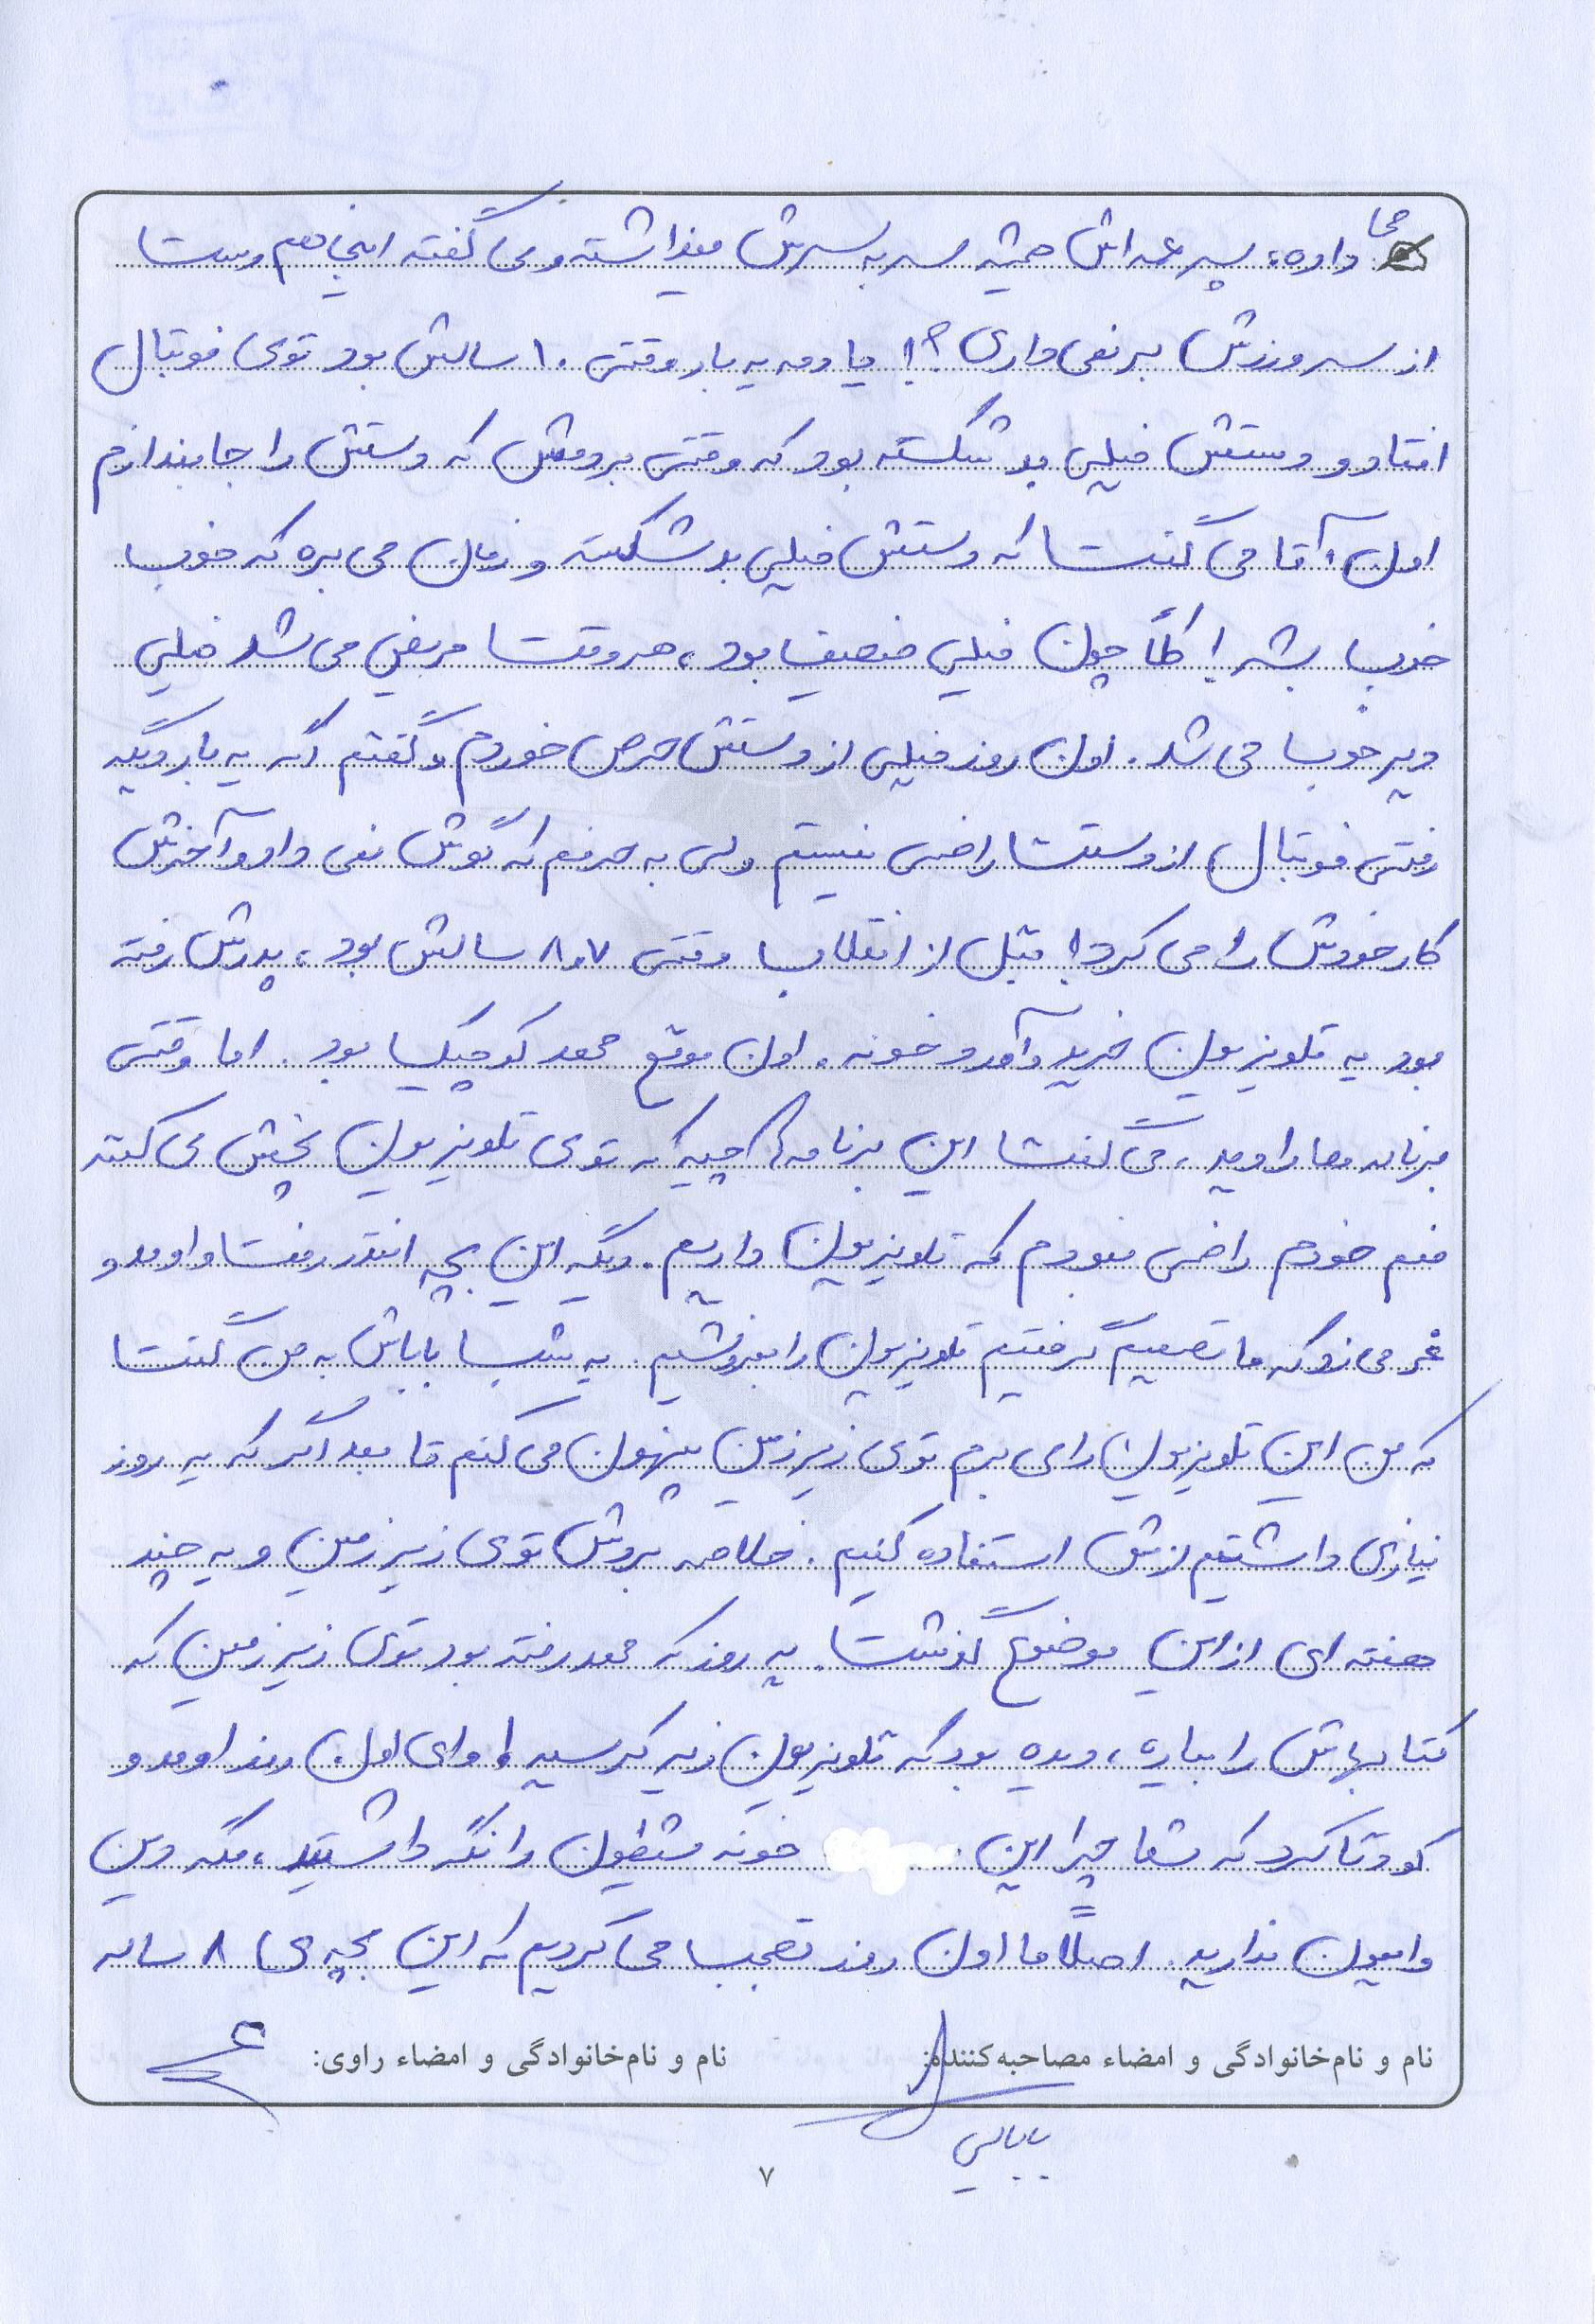 می‌داده، پسر عمه‌اش همیشه سر به سرش میذاشته و می‌گفته اینجا هم دست
از سر ورزش بر نمی‌داری؟! یادمه یه بار وقتی ۱۰ سالش بود توی فوتبال
افتاد و دستش خیلی بد شکسته بود که وقتی بردمش که دستش را جا بندازم
اون آقا می‌گفت که دستش خیلی بد شکسته و زمان می‌بره که خوب
خوب بشه! کلاً چون خیلی ضعیف بود، هر وقت مریض می‌شد خیلی
دیر خوب می‌شد. اون روز خیلی از دستش حرص خوردم و گفتم اگه یه بار دیگه
رفتی فوتبال از دستت راضی نیستم ولی به حرفم که گوش نمی‌داد و آخرش
کار خودش را می‌کرد! قبل از انقلاب وقتی ۷، ۸ سالش بود، پدرش رفته
بود یه تلویزیون خرید و آمد خونه. اون موقع محمد کوچیک بود. اما وقتی
برنامه‌ها را دید، می‌گفت این برنامه‌ها چیه که توی تلویزیون پخش می‌کنند
منم خودم راضی نبودم که تلویزیون داریم. دیگه این بچه انقدر رفت و اومد و
غر می‌زد که ما تصمیم گرفتیم تلویزیون را بفروشیم. یه شب باباش به من گفت
که من این تلویزیون را می‌برم توی زیرزمین پنهون می‌کنم تا بعد اگر که یه روز
نیازی داشتیم ازش استفاده کنیم. خلاصه بردش توی زیرزمین و یه چند
هفته‌ای از این موضوع گذشت. یه روز که محمد رفته بود توی زیرزمین که
کتابهاش را بیاره، دیده بود که تلویزیون زیر کرسیه! وای اون روز اومد و
کودتا کرد که شما چرا این خونه شیطون را نگه داشتید، مگه دین
و ایمون ندارید. اصلاً ما اون روز تعجب می‌کردیم که این بچه‌ی ۸ ساله
نام و نام‌خانوادگی و امضاء مصاحبه‌کننده: نام و نام‌خانوادگی و امضاء راوی:
بابالی
۷